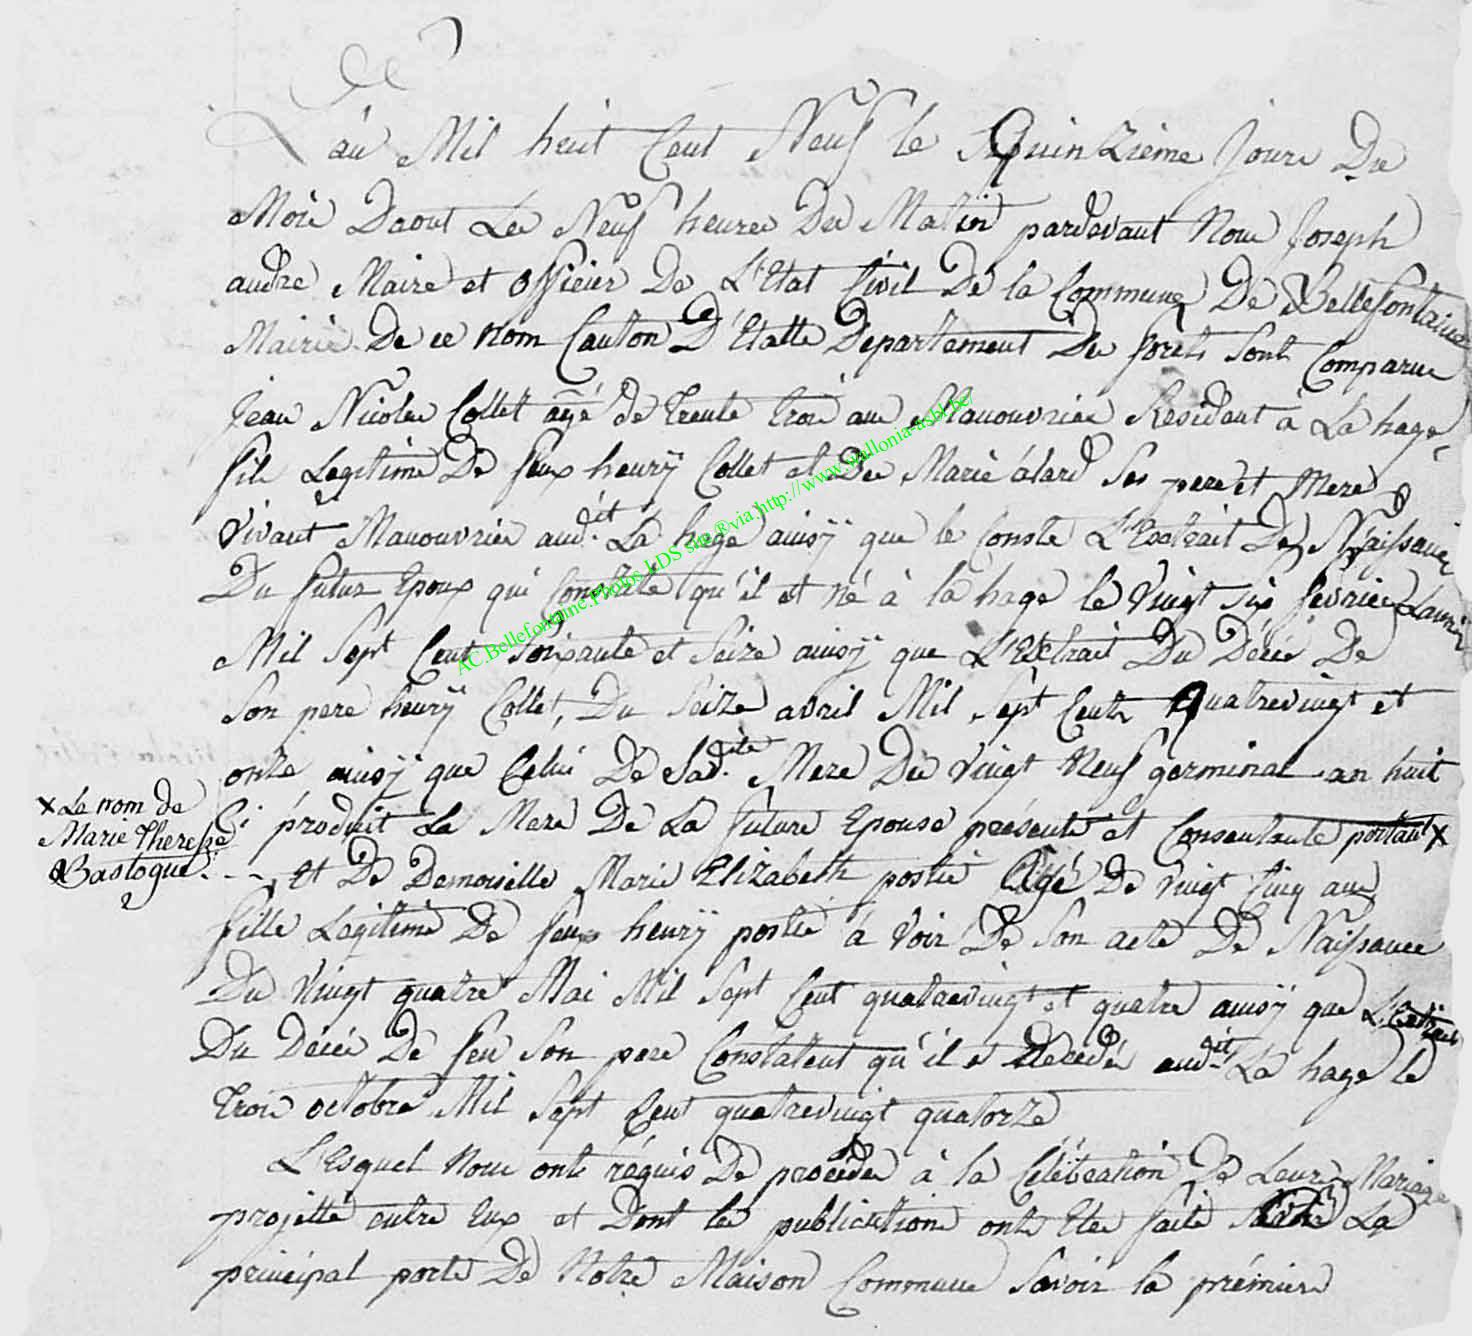 L'an Mil huit Cent Neuf le Quinzième Jour Du
Mois Daout Les Neuf heures Du Matin pardevant Nous Joseph
andre Maire et officier De L'Etat Civil De la Commune De Bellefontaine
Mairie De ce nom Canton D'Etalle Departement Des forets Sont Comparus
Jean Nicolas Collet agé de Trente trois ans Manouvrier Residant à La hage
fils Legitime De feux henrÿ Collet et De Marie alard Ses pere et Mere
Vivant Manouvrier aud.it La hage ainsÿ que le Conste L'Extrait De Naissance
Du futur Epoux qui Constate qu'il est né à la hage le Vingt six fevrier Lannée
Mil Sept Cent Soixante et Seize ainsÿ que L'Extrait Du Décès De
Son pere henrÿ Collet, Du Seize avril Mil Sept Cents Quatrevingt et
onze ainsÿ que Celui De Sad.ite Mere Du Vingt Neuf germinal an huit
Ci produit La Mere De La future Epouse présente et Consentante portant x
x Le nom de
Marie Theresse
Bastogne.
Et De Demoiselle Marie Elizabeth postié Agé De Vingt Cinq ans
fille Legitime De feux henrÿ postié à Voir De Son acte De Naissance
Du Vingt quatre Mai Mil Sept Cent quatrevingt et quatre ainsÿ que L'Extrait
Du Décès De feu Son pere Constatent qu'il e Decedé aud.it La hage le
Trois octobre Mil Sept Cent quatrevingt quatorze
L'Esquel Nous ont réquis De procéder à la Célébration De Leurs Mariage
projette entre Eux et Dont les publications onts Etes faite La
principal porte De Notre Maison Commune Savoir la prémiere
AC.Bellefontaine.Photos LDS site ®via http://www.wallonia-asbl.be/